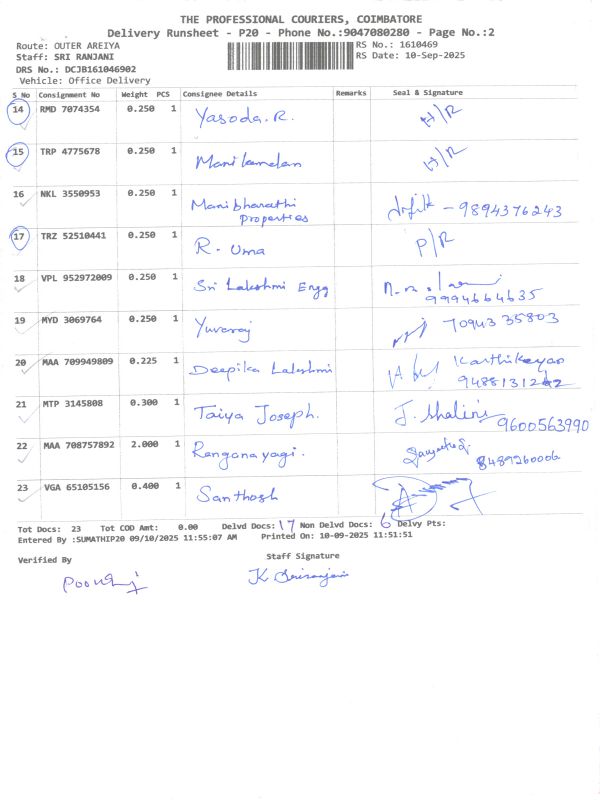 THE PROFESSIONAL COURIERS, COIMBATORE
Delivery Runsheet - P20 - Phone No.:9047080280 - Page No.:2
Route: OUTER AREIYA RS No.: 1610469
Staff: SRI RANJANI RS Date: 10-Sep-2025
DRS No.: DCJB161046902
Vehicle: Office Delivery
S_No Consignment No Weight PCS Consignee Details Remarks Seal & Signature
14 RMD 7074354 0.250 1 Yasoda.R. H/R
15 TRP 4775678 0.250 1 Manikandan H/R
16 NKL 3550953 0.250 1 Manibharathi - 9894376243
Properties
17 TRZ 52510441 0.250 1 R. Uma P/R
18 VPL 952972009 0.250 1 Sri Lakshmi Engg
9994664635
19 MYD 3069764 0.250 1 Yuvaraj 70943 35803
20 MAA 709949809 0.225 1 Deepika Lakshmi Karthikeyan
21 MTP 3145808 0.300 1 Taiya Joseph. J. Shalini 9600563990
22 MAA 708757892 2.000 1 Ranganayagi. 8489260006
23 VGA 65105156 0.400 1 Santhosh
Tot Docs: 23 Tot COD Amt: 0.00 Delvd Docs: 17 Non Delvd Docs: 6 Delvy Pts:
Entered By :SUMATHIP20 09/10/2025 11:55:07 AM Printed On: 10-09-2025 11:51:51
Verified By Staff Signature